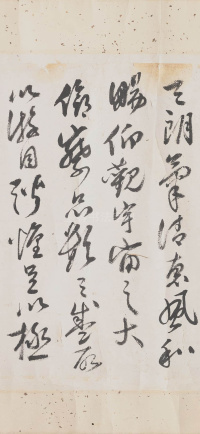 天朗氣清惠風和
暢仰觀宇宙之大
俯察品類之盛所
以游目騁懷足以極